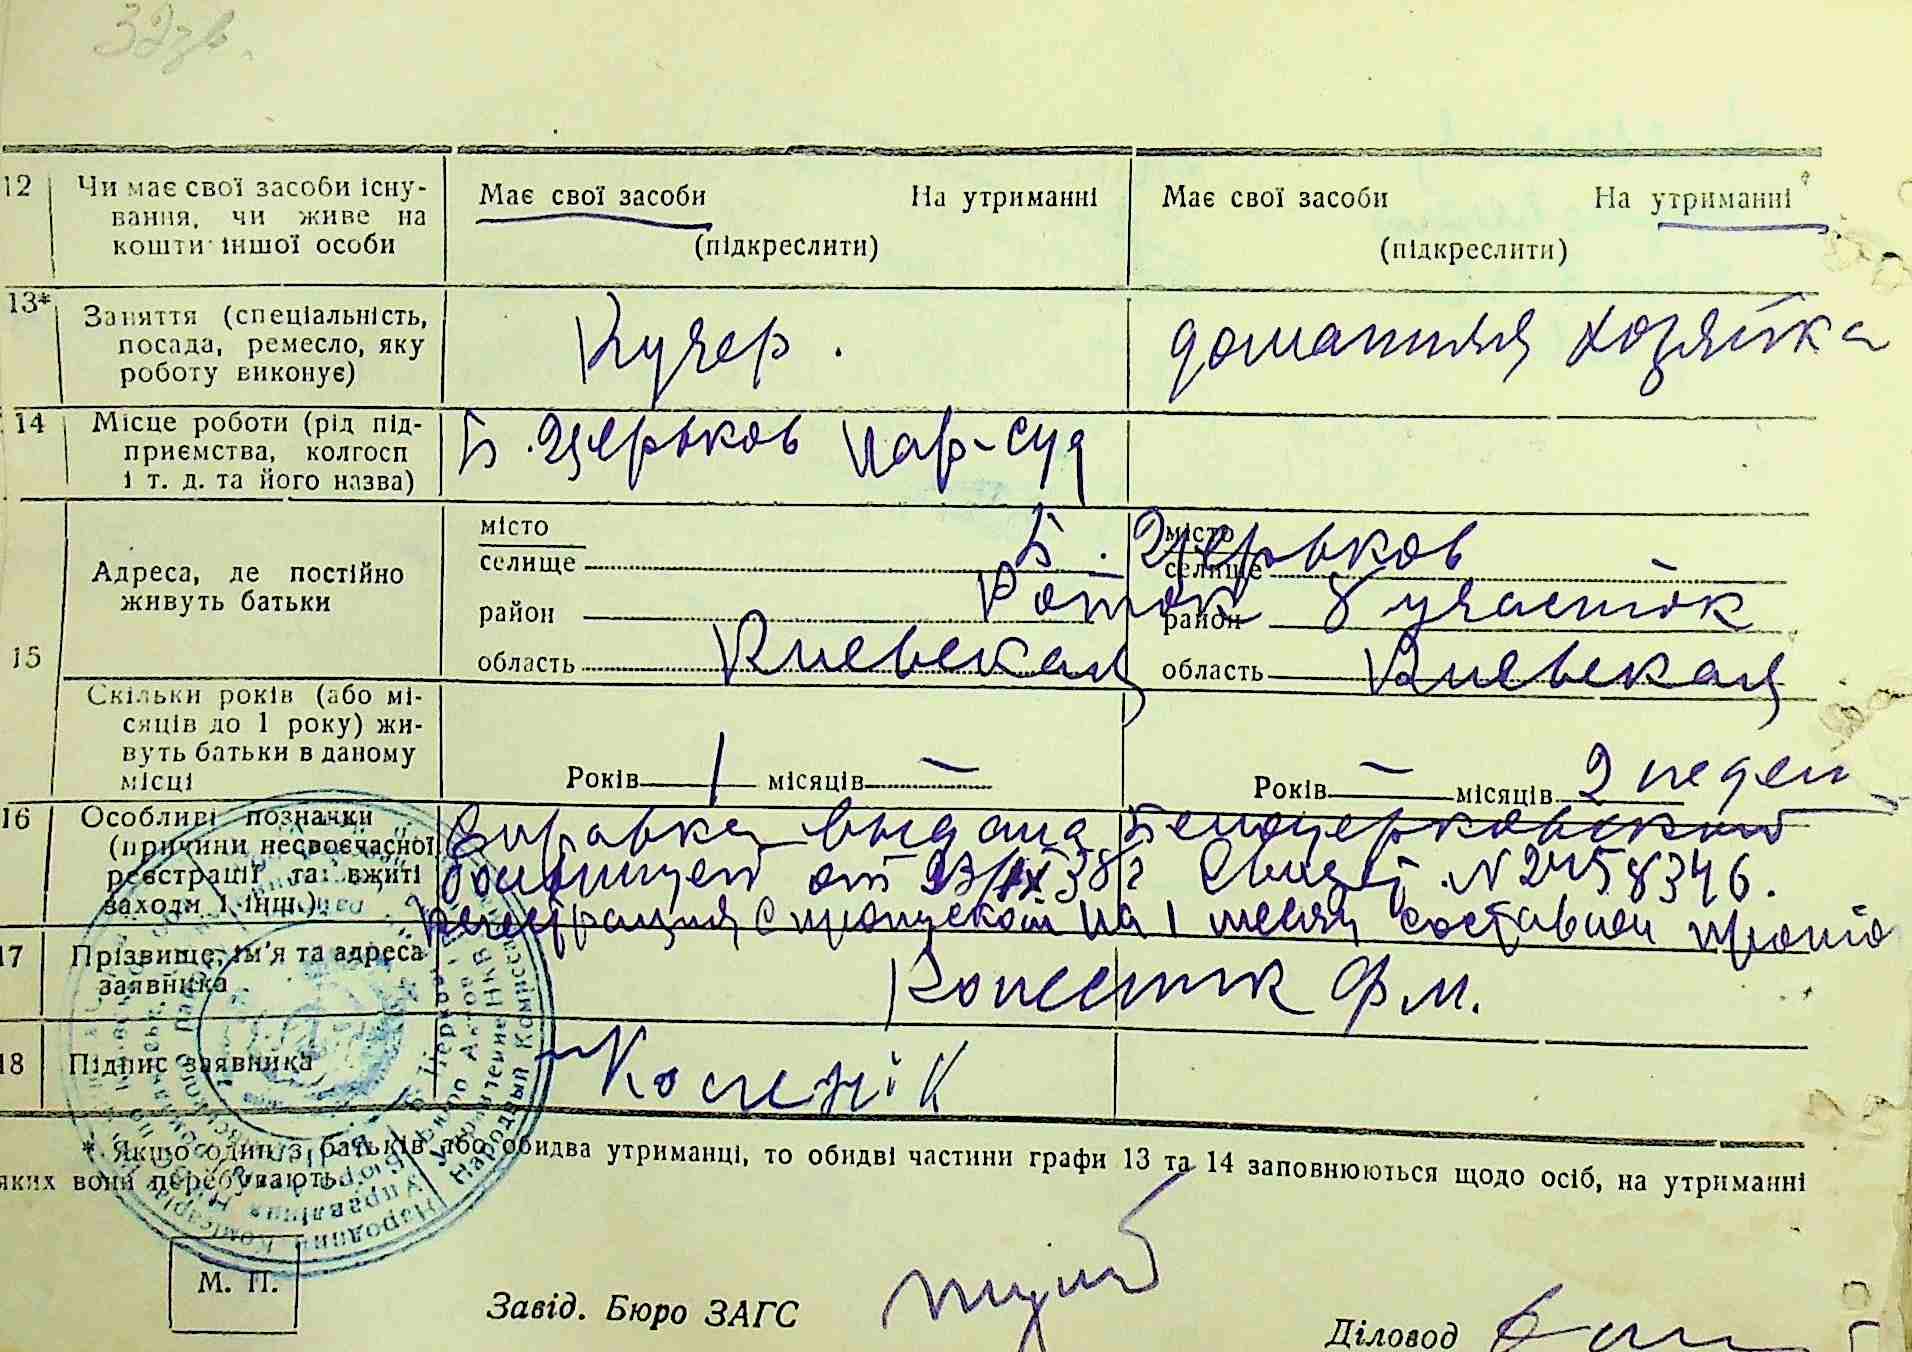 32зв.
12 Чи має свої засоби існу-
вання, чи живе на
кошти іншої особи
Має свої засоби На утриманні
(підкреслити)
Має свої засоби На утриманні
(підкреслити)
13* Заняття (спеціальність,
посада, ремесло, яку
роботу виконує)
Кучер.
домашняя хозяйка
14 Місце роботи (рід під-
приємства, колгосп
і т. д. та його назва)
Б. Церьков нар-суд
15 Адреса, де постійно
живуть батьки
місто
селище
район
область Киевская
Б. Церьков
Роток 8 участок
місто
селище
район
область Киевская
Скільки років (або мі-
сяців до 1 року) жи-
вуть батьки в даному
місці
Років 1 місяців —
Років — місяців 2 недел
16 Особливі позначки
(причини несвоєчасної
реєстрації та вжиті
заходи і інш.)
Справка выдана Белоцерковской
больницей от 23/IX 38г Свидет. №2458346.
регистрация с пропуском на 1 месяц составлен прото
17 Прізвище, ім'я та адреса
заявника
Ф М.
18 Підпис заявника
* Якщо один з батьків або обидва утриманці, то обидві частини графи 13 та 14 заповнюються щодо осіб, на утриманні
яких вони перебувають.
М. П.
Завід. Бюро ЗАГС
Діловод